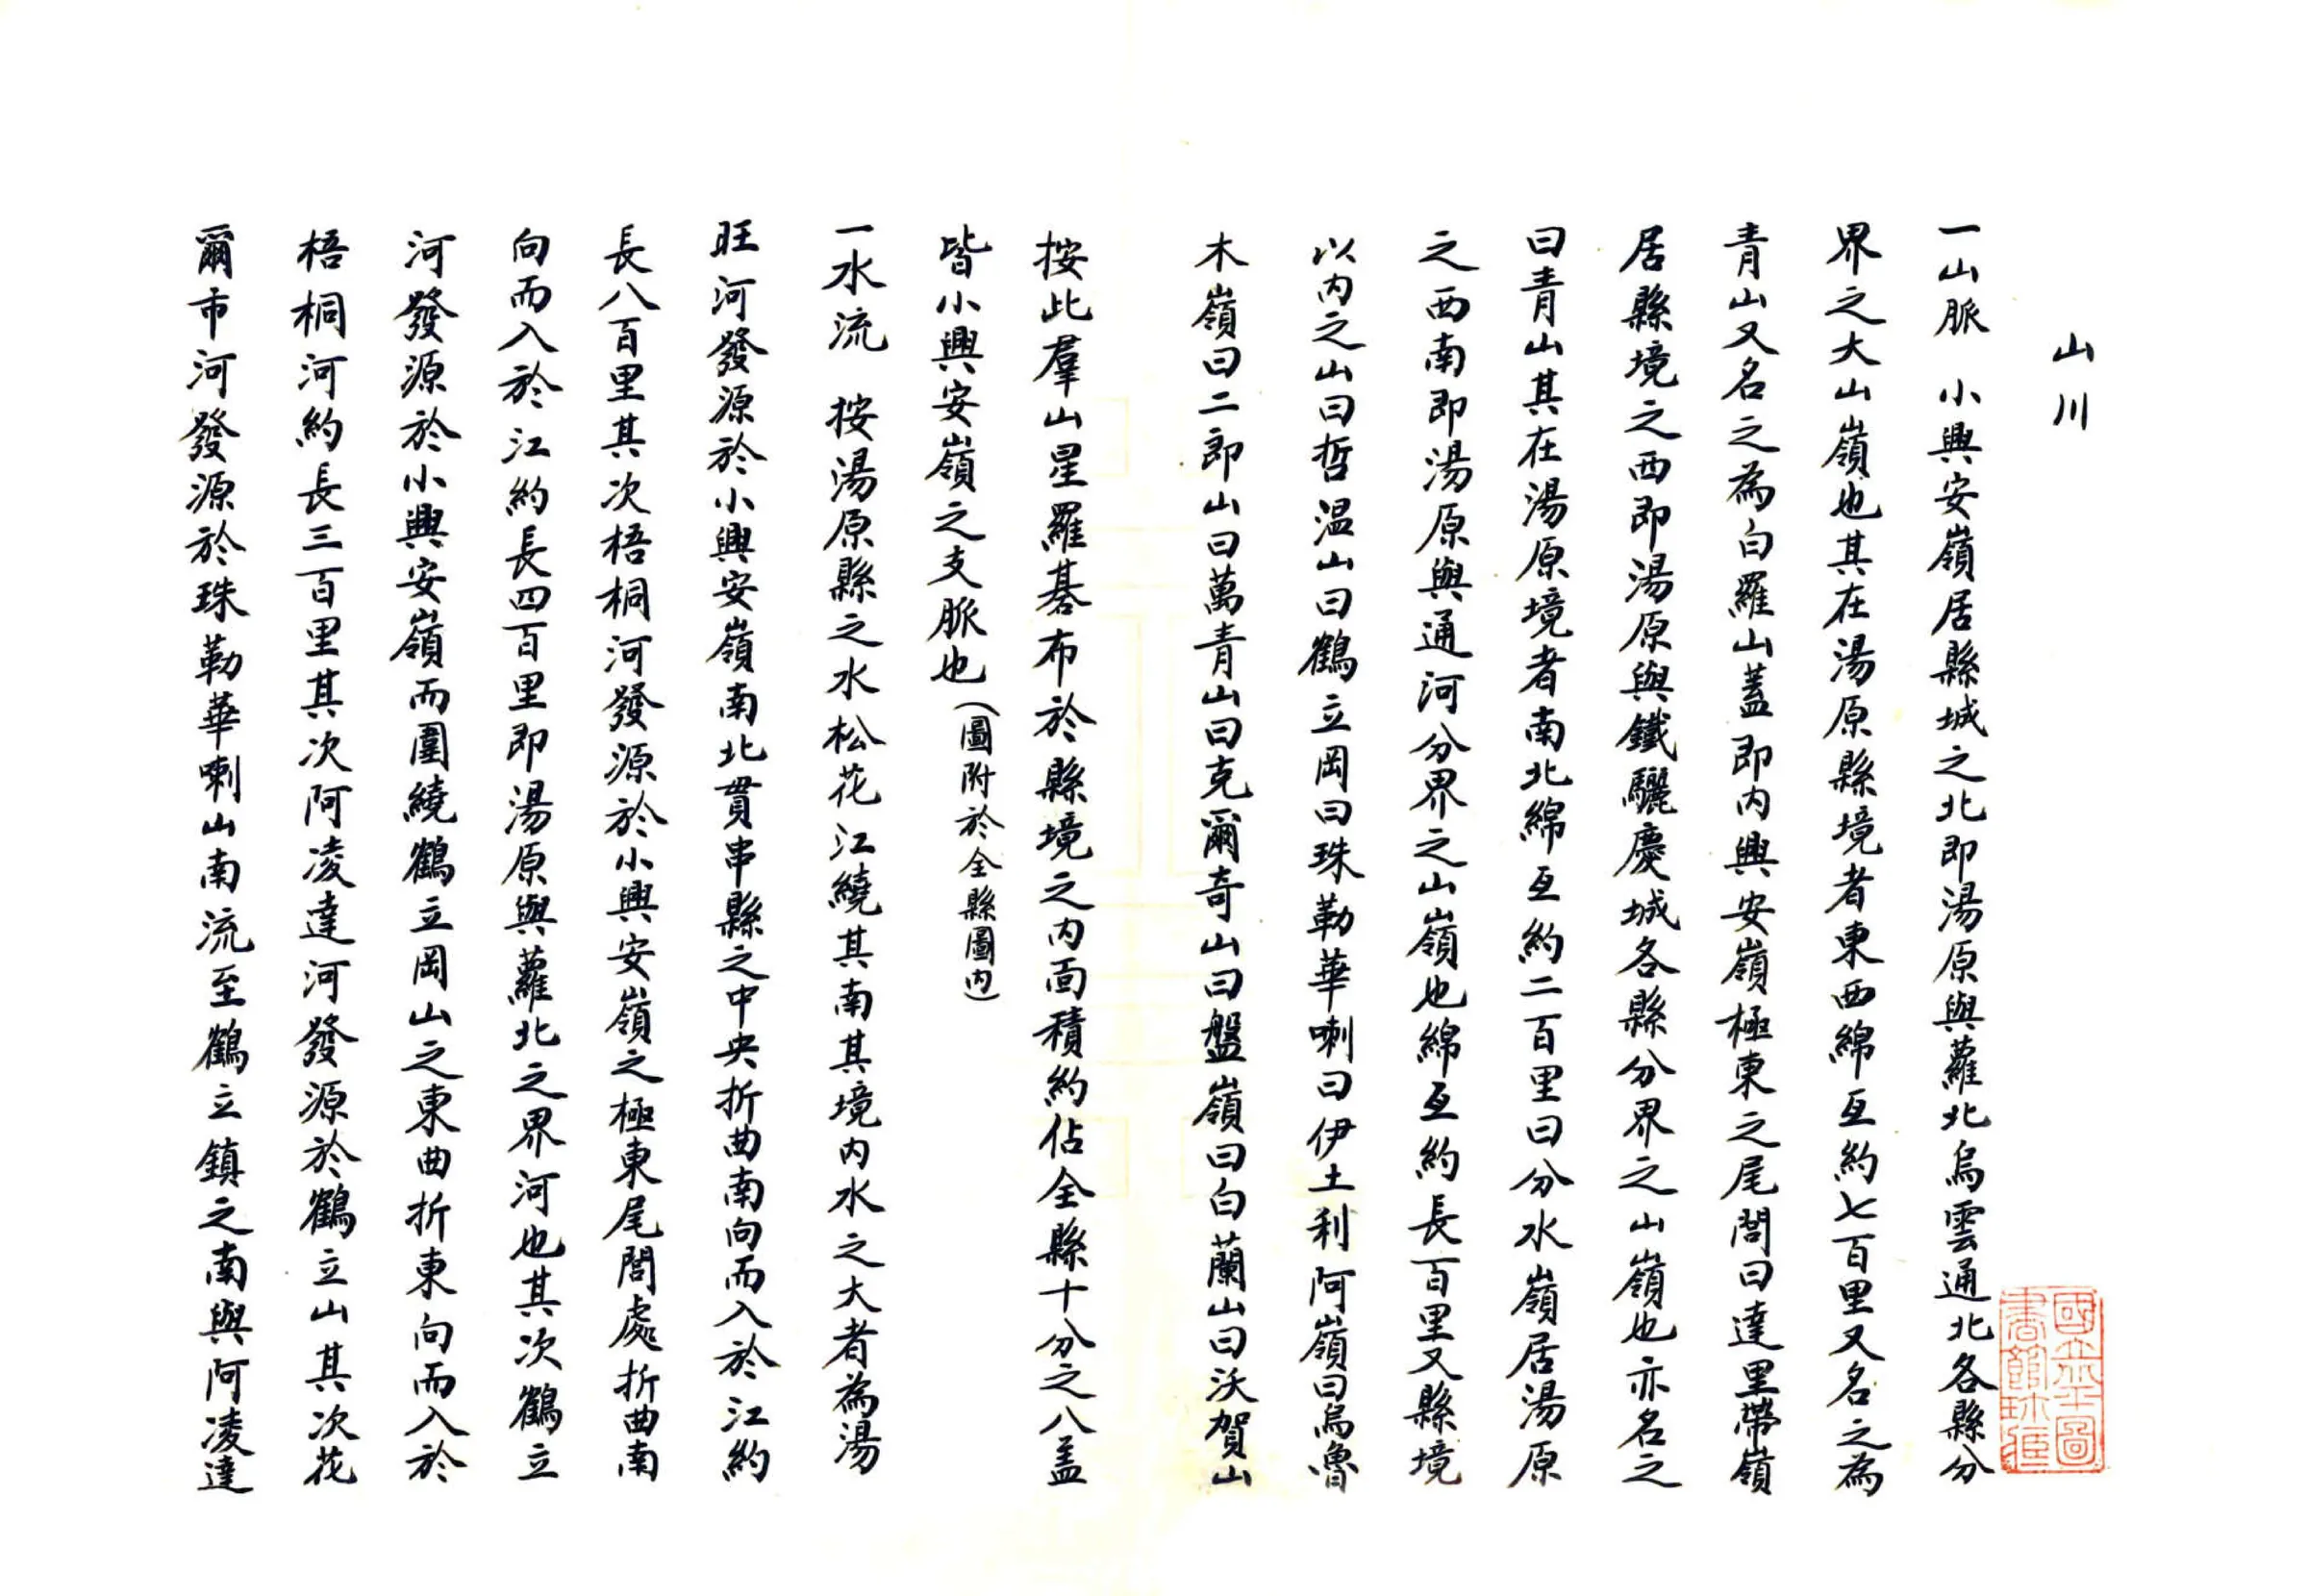 山川
一山脈　小興安嶺居縣城之北即湯原與蘿北烏雲通北各縣分
界之大山嶺也其在湯原縣境者東西綿亙約七百里又名之為
青山又名之為白羅山蓋即內興安嶺極東之尾閭曰達里帶嶺
居縣境之西即湯原與鐵驪慶城各縣分界之山嶺也亦名之
曰青山其在湯原境者南北綿亙約二百里曰分水嶺居湯原
之西南即湯原與通河分界之山嶺也綿亙約長百里又縣境
以內之山曰哲温山曰鶴立岡曰珠勒華喇曰伊土利阿嶺曰烏魯
木嶺曰二郎山曰萬青山曰克爾奇山曰盤嶺曰白蘭山曰沃賀山
按此羣山星羅碁布於縣境之內面積約佔全縣十分之八盖
皆小興安嶺之支脈也（圖附於全縣圖內）
一水流　按湯原縣之水松花江繞其南其境內水之大者為湯
旺河發源於小興安嶺南北貫串縣之中央折曲南向而入於江約
長八百里其次梧桐河發源於小興安嶺之極東尾閭處折曲南
向而入於江約長四百里即湯原與蘿北之界河也其次鶴立
河發源於小興安嶺而圍繞鶴立岡山之東曲折東向而入於
梧桐河約長三百里其次阿凌達河發源於鶴立山其次花
爾市河發源於珠勒華喇山南流至鶴立鎮之南與阿凌達
國立北平圖
書館珍藏